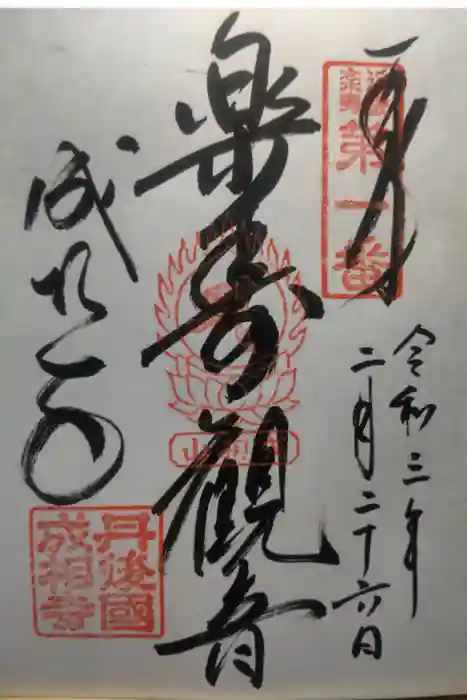 第一番
令和三年
二月二十六日
楽寿觀音
成相山
成相寺
丹後國
成相寺